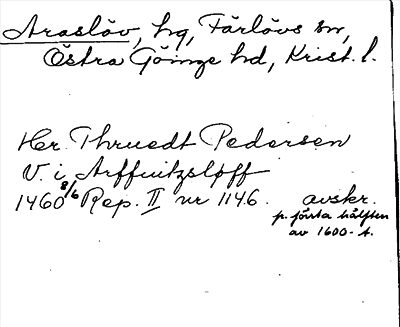 Araslöv, hg, Färlövs sn,
Östra Göinge hd, Krist. l.
Her Thruedt Pedersen
V. i Arffuitzsløff
1460 8/6 Rep. II nr 1146. avskr.
p. första hälften
av 1600-t.